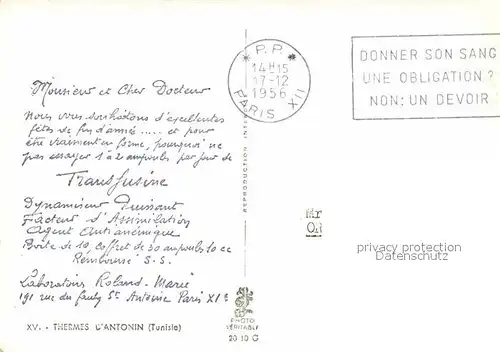 Monsieur et Cher Docteur
Nous vous souhaitons d'excellentes
fêtes de fin d'année ..... et pour
être vraiment en forme, pourquoi ne
pas essayer 1 à 2 ampoules par jour de
Transfusine
Dynamiseur Puissant
Facteur d'Assimilation
Agent Antianémique
Boîte de 10, coffret de 30 ampoules 10 cc
Remboursé S.S.
Laboratoires Roland-Marie
191 rue du Faubg St Antoine Paris XIe
XV. - THERMES D'ANTONIN (Tunisie)
REPRODUCTION
PHOTO
VÉRITABLE
20 10 G
* P.P. *
14H15
17-12
1956
PARIS XII
DONNER SON SANG
UNE OBLIGATION ?
NON: UN DEVOIR
privacy protection
Datenschutz